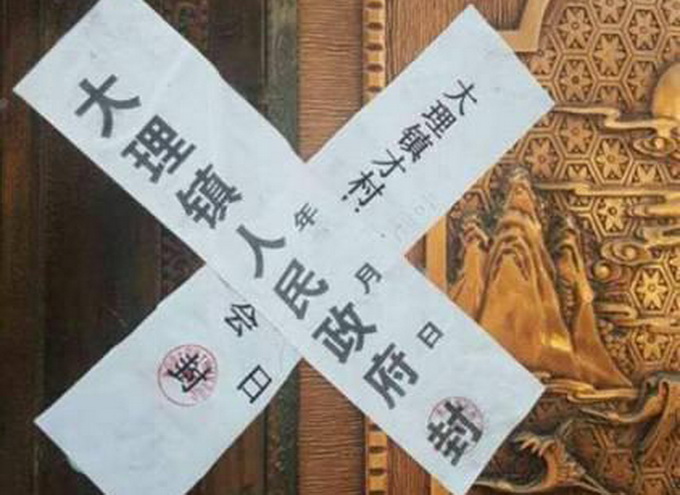 大理镇人民政府封
年月日
大理镇才村
会
日
封